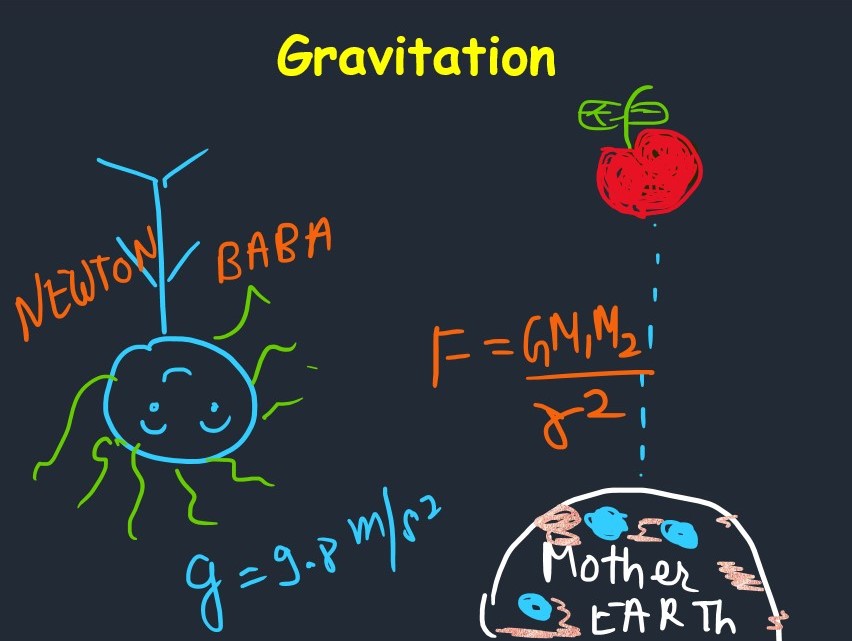 Gravitation
NEWTON BABA
F = GM₁M₂
r²
g = 9.8 m/s²
Mother
EARTh